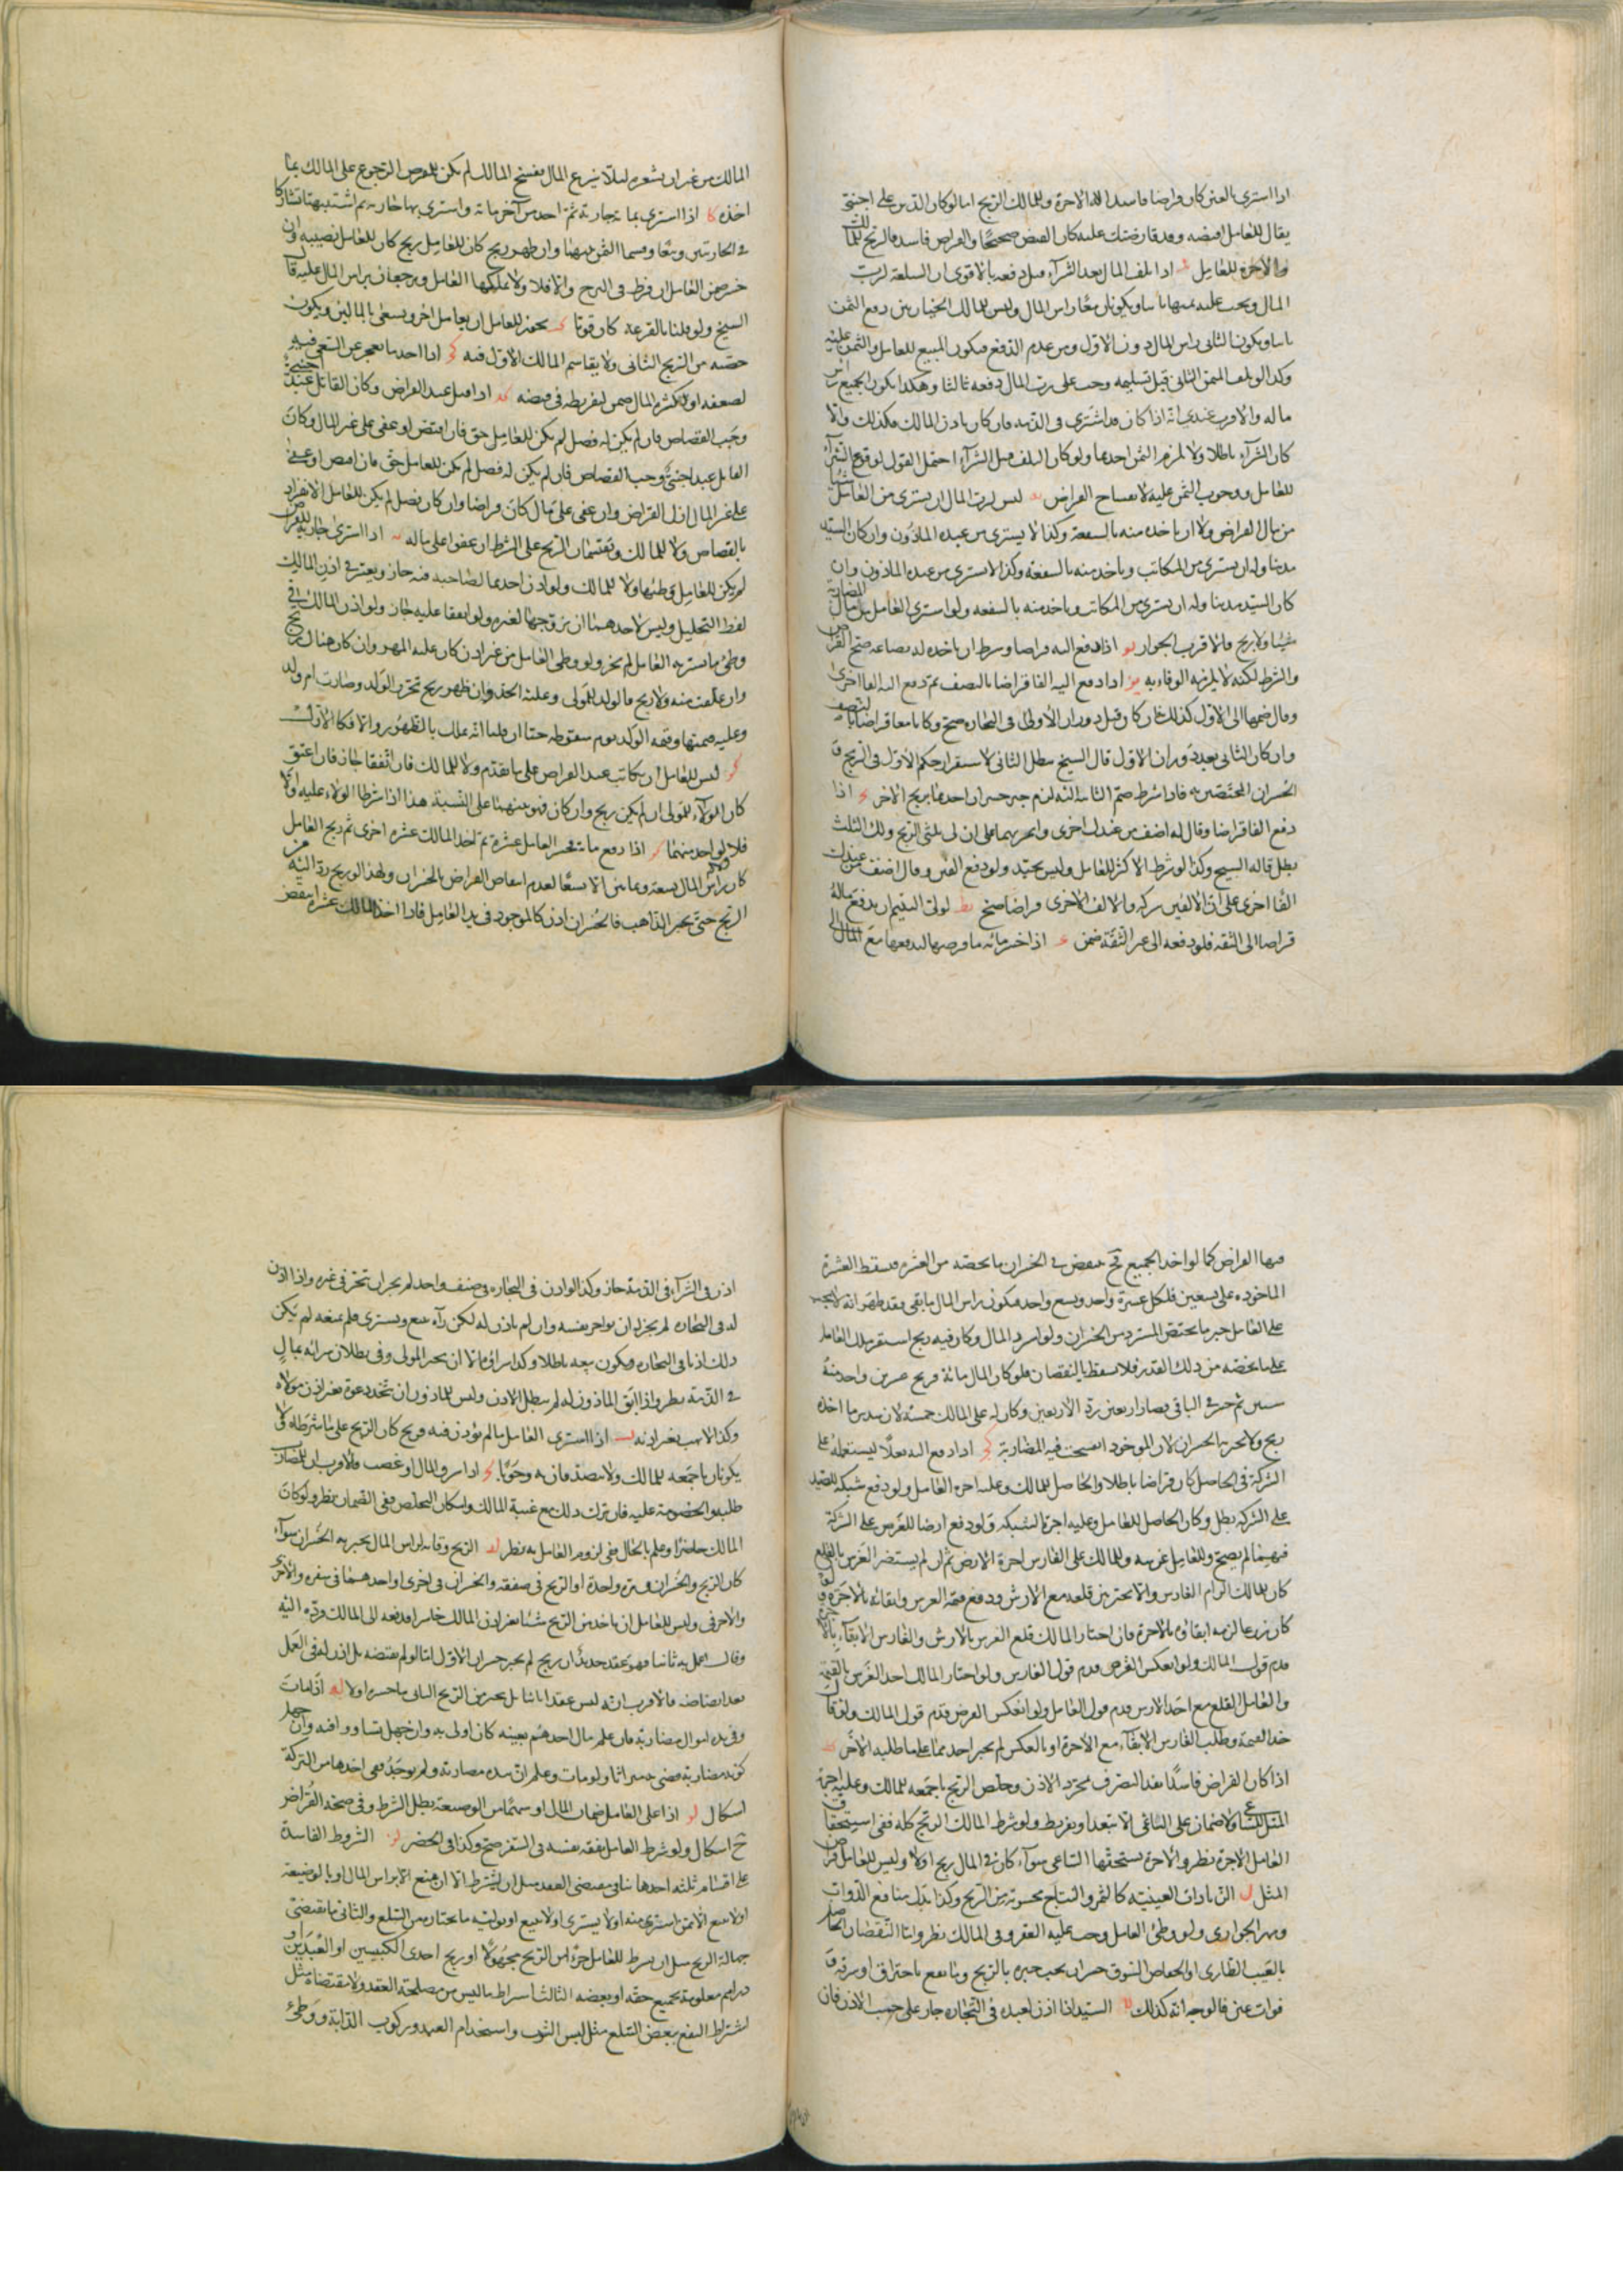 اذا اشترى بالعين كان قراضا فاسدا له الاجرة وللمالك الربح اما لو كان الدين على اجنبي
فقال للعامل اقبضه وقد قارضتك عليه كان القبض صحيحا والقراض فاسد فالربح للمالك
والاجرة للعامل اذا تلف المال بعد الشرآء قبل دفعه فالاقوى ان السلعة لرب
المال ويجب عليه ثمنها ثانيا ويكونان معا راس المال وليس للمالك الخيار بين دفع الثمن
ثانيا ويكون الثاني راس المال دون الاول وبين عدم الدفع فيكون المبيع للعامل والثمن عليه
وكذا لو تلف الثمن الثاني قبل تسليمه وجب على رب المال دفعه ثالثا وهكذا يكون الجميع راس
ماله والاقرب عندي انه اذا كان قد اشترى في الذمة فان كان باذن المالك فكذلك والا
كان الشرآء باطلا ولا يلزم الثمن احدهما ولو كان التلف قبل الشرآء احتمل القول بوقوع الشرآء
للعامل ووجوب الثمن عليه لانفساخ القراض يه ليس لرب المال ان يشترى من العامل شيئا
من مال القراض ولا ان ياخذ منه بالشفعة وكذا لا يشترى من عبده الماذون وان كان السيد
مدينا وله ان يشترى من المكاتب وياخذ منه بالشفعة وكذا لا يشترى من عبده الماذون وان
كان السيد مدينا وله ان يشترى من المكاتب وياخذ منه بالشفعة ولو اشترى العامل من مال المضاربة
شيئا ولا ربح فالاقرب الجواز يو اذا دفع اليه قراضا وشرط ان ياخذ له بضاعة صح القراض
والشرط لكنه لا يلزمه الوفاء به يز اذا دفع اليه الفا قراضا بالنصف ثم دفع اليه الفا اخرى
وقال ضمها الى الاول كذلك فان كان قبل دوران الاولى في التجارة صح وكانا معا قراضا بالنصف
وان كان الثاني بعد دوران الاول قال الشيخ يبطل الثاني لاستقرار حكم الاول في الربح و
الخسران المختصين به فاذا شرط ضم الثانية اليه لزم جبر خسران احدهما بربح الاخر يح اذا
دفع الفا قراضا وقال له اضف من عندك اخرى واتجر بهما على ان لى ثلثى الربح ولك الثلث
بطل قاله الشيخ وكذا لو شرط الاكثر للعامل وليس بجيد ولو دفع الفين وقال اضف من عندك
الفا اخرى على ان الالفين شركة والالف الاخرى قراضا صح يط لولى اليتيم ان يدفع ماله
قراضا الى الثقة فلو دفعه الى غير الثقة ضمن ك اذا خسر مائة فاقرضها ليدفعها مع المال الى
المالك من غير ان يشعره لئلا ينزع المال ففسخ المالك لم يكن للمقرض الرجوع على المالك بما
اخذه كا اذا اشترى بمائة جارية ثم اخذ من آخر مائة واشترى بها جارية ثم اشتبهتا تشاركا
في الجاريتين وبيعا وقسما الثمن بينهما وان ظهر ربح كان للعامل نصيبه وان
خسر ضمن العامل ان فرط في المزج والا فلا ولا يملكهما العامل ويرجعان براس المال عليه قاله
الشيخ ولو قلنا بالقرعة كان قويا كب يجوز للعامل ان يعامل اخر ويسعى بالمالين ويكون
حصته من الربح الثاني ولا يقاسم المالك الاول فيه كج اذا اخذ ما يعجز عن السعى فيه
لضعفه او لكثرة المال ضمن لتفريطه في قبضه كد اذا قتل عبد القراض وكان القاتل عبد اجنبي
وجب القصاص فان لم يكن له فضل لم يكن للعامل حق فان اقتص او عفى على غير المال وكان
القاتل عبد اجنبى وجب القصاص فان لم يكن له فضل لم يكن للعامل حق فان اقتص او عفى
على غير المال زال القراض وان عفى على مال كان قراضا وان كان فضل لم يكن للعامل الانفراد
بالقصاص ولا للمالك ويقتسمان الربح على الشرط ان عفوا على مال كه اذا اشترى جارية للقراض
لم يكن للعامل وطئها ولا للمالك ولو اذن احدهما لصاحبه فيه جاز ويعتبر في اذن المالك
لفظ التحليل وليس لاحدهما ان يزوجها لغيره ولو اتفقا عليه جاز ولو اذن المالك في
وطئ ما يشتريه العامل لم يجز ولو وطى العامل من غير اذن كان عليه المهر وان كان هناك ربح
وان علقت منه ولا ربح فالولد للمولى وعليه الحد وان ظهر ربح تحرر الولد وصارت ام ولد
وعليه قيمتها وقيمة الولد يوم سقوطه حيا ان قلنا انه يملك بالظهور والا فكالاول
كو ليس للعامل ان يكاتب عبد القراض على ما تقدم ولا للمالك فان اتفقا جاز فان اعتق
كان الولاء للمولى ان لم يكن ربح وان كان فهو بينهما على النسبة هذا اذا شرطا الولاء عليه والا
فلا لواحد منهما كز اذا دفع مائة فخسر العامل عشرة ثم اخذ المالك عشرة اخرى ثم ربح العامل
كان راس المال تسعة وثمانين الا تسعا لعدم انتقاص القراض بالخسران ولهذا لو ربح رد اليه من
الربح حتى يجبر الذاهب فالخسران اذن كالموجود في يد العامل فاذا اخذ المالك عشرة انتقض
فيها القراض كما لو اخذ الجميع فح ينقض في الخسران ما يخصه من العشرة فيسقط العشرة
الماخوذة على تسعين فلكل عشرة واحد وتسع واحد فيكون راس المال ما بقى وقد ظهر انه لا يجب
على العامل جبر ما يختص المسترد من الخسران ولو استرد المال وكان فيه ربح استقر ملك العامل
على ما يخصه من ذلك القدر فلا يسقط بالنقصان فلو كان المال مائة فربح عشرين واخذ منه
ستين ثم خسر في الباقي فصار اربعين رد الاربعين وكان له على المالك خمسة لان سدس ما اخذه
ربح ولا تجربه الخسران لان الموجود انفسخت فيه المضاربة كح اذا دفع اليه بغلا ليستعمله على
الشركة في الحاصل كان قراضا باطلا والحاصل للمالك وعليه اجرة العامل ولو دفع شبكة للصيد
على الشركة بطل وكان الحاصل للعامل وعليه اجرة الشبكة ولو دفع ارضا للغرس على الشركة
فيهما لم يصح وللعامل غرسه وللمالك على الغارس اجرة الارض ثم ان لم يستضر الغرس بالقلع
كان للمالك الزام الغارس والا تخير بين قلعه مع الارش ودفع قيمة الغرس وابقائه بالاجرة ولو
كان زرعا لزمه ابقاؤه بالاجرة فان اختار المالك قلع الغرس بالارش والغارس الابقآء بالاجرة
قدم قول المالك ولو انعكس الفرض قدم قول الغارس ولو اختار المالك اخذ الغرس بالقيمة
والعامل القلع مع اخذ الارش قدم قول العامل ولو انعكس الفرض قدم قول المالك ولو قال
خذ القيمة وطلب الغارس الابقآء مع الاجرة او بالعكس لم يجبر احدهما على ما طلبه الاخر كط
اذا كان القراض فاسدا نفذ التصرف بمجرد الاذن وخلص الربح باجمعه للمالك وعليه اجرة
المثل للساعي ولا ضمان على الساعي الا بتعد او تفريط ولو شرط المالك الربح كله ففي استحقاق
العامل الاجرة نظر والاجرة يستحقها الساعي سواء كان في المال ربح اولا وليس للعامل قراض
المثل ل الزيادات العينية كالثمر والنتاج محسوبة من الربح وكذا بدل منافع الدواب
ومهر الجوارى ولو وطئ العامل وجب عليه العقر وفي المالك نظر واما النقصان الحاصل
بالعيب الطارى او انخفاض السوق خسران يجب جبره بالربح وما يقع باحتراق او سرقة و
فوات عين فالوجه انه كذلك لا السيد اذا اذن لعبده في التجارة جاز على حسب الاذن فان
اذن في الشرآء في الذمة جاز وكذا لو اذن في التجارة في صنف واحد لم يجز ان يتجر في غيره واذا اذن
له في التجارة لم يجز ان يواجر نفسه وان لم ياذن له لكن رآه يبيع ويشترى فلم يمنعه لم يكن
ذلك اذنا في التجارة ويكون بيعه باطلا وكذا شراؤه
في الذمة نظر واذا ابق الماذون له لم يبطل الاذن وليس للماذون ان يتخذ دعوة بغير اذن مولاه
وكذا لا يهب بغير اذنه لب اذا اشترى العامل ما لم يؤذن فيه فربح كان الربح على ما شرطه في
يكونان باجمعه للمالك ولا يتصدقان به وجوبا لج اذا سرق المال او غصب فالاقرب ان للمضارب
طلبه والخصومة عليه فان ترك ذلك مع غيبة المالك وامكان التخلص ففي الضمان نظر ولو كان
المالك حاضرا وعلم بالحال ففي لزوم العامل به نظر لد الربح وقاية لراس المال يجبر به الخسران سوآء
كان الربح والخسران في مرة واحدة او الربح في صفقة والخسران في اخرى او احدهما في سفره والاخر
والاخر في وليس للعامل ان ياخذ من الربح شيئا بغير اذن المالك خاسرا فدفعه الى المالك ورده اليه
وقال اعمل به ثانيا فهو عقد جديد ان ربح لم يجبر خسران الاول اما لو لم يقبضه بل اذن له في العمل
بعد ايضاضه فالاقرب انه ليس عقدا ثانيا بل يجبر من الربح الثاني ما خسره اولا له اذا مات
وفي يده اموال مضاربة فان علم مال احدهم بعينه كان اولى به وان جهل تساووا فيه وان جهل
كونه مضاربة قضى ميراثا ولو مات وعلم ان بيده مضاربة ولم يوجد ففى اخذها من التركة
اشكال لو اذا على العامل ضمان المال او سهما من الوضيعة بطل الشرط وفي صحة القراض
ح اشكال ولو شرط العامل نفقة نفسه في السفر صح وكذا في الحضر لز الشروط الفاسدة
على اقسام ثلثة احدها ينافي مقتضى العقد مثل ان يشترط الا
او لا يبيع الا بمن اشترى منه او لا يشترى او لا يبيع او يوليه ما يختاره من السلع والثاني ما يقتضى
جهالة الربح مثل ان يشرط للعامل جزءا من الربح مجهولا او ربح احدى الكيسين او العبدين او
دراهم معلومة بجميع حقه او ببعضه الثالث اشتراط ما ليس من مصلحة العقد ولا مقتضاه مثل
اشتراط النفع ببعض السلع مثل لبس الثوب واستخدام العبد وركوب الدابة ووطئ